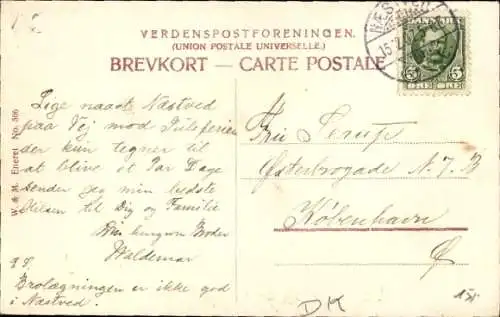 VERDENSPOSTFORENINGEN.
(UNION POSTALE UNIVERSELLE.)
BREVKORT — CARTE POSTALE
NÆSTVED
15.
DANMARK
5
5
W. & M. Eneret No. 306
Lige naaet Næstved
paa Vej mod Juleferien
der kun tegner til
at blive et Par Dage
sender jeg min bedste
Hilsen til Dig og Familie
Din Broder
Waldemar
P.S.
Brolægningen er ikke god
i Næstved.
Fru
Østerbrogade N. 7 B
København
Ø
DK